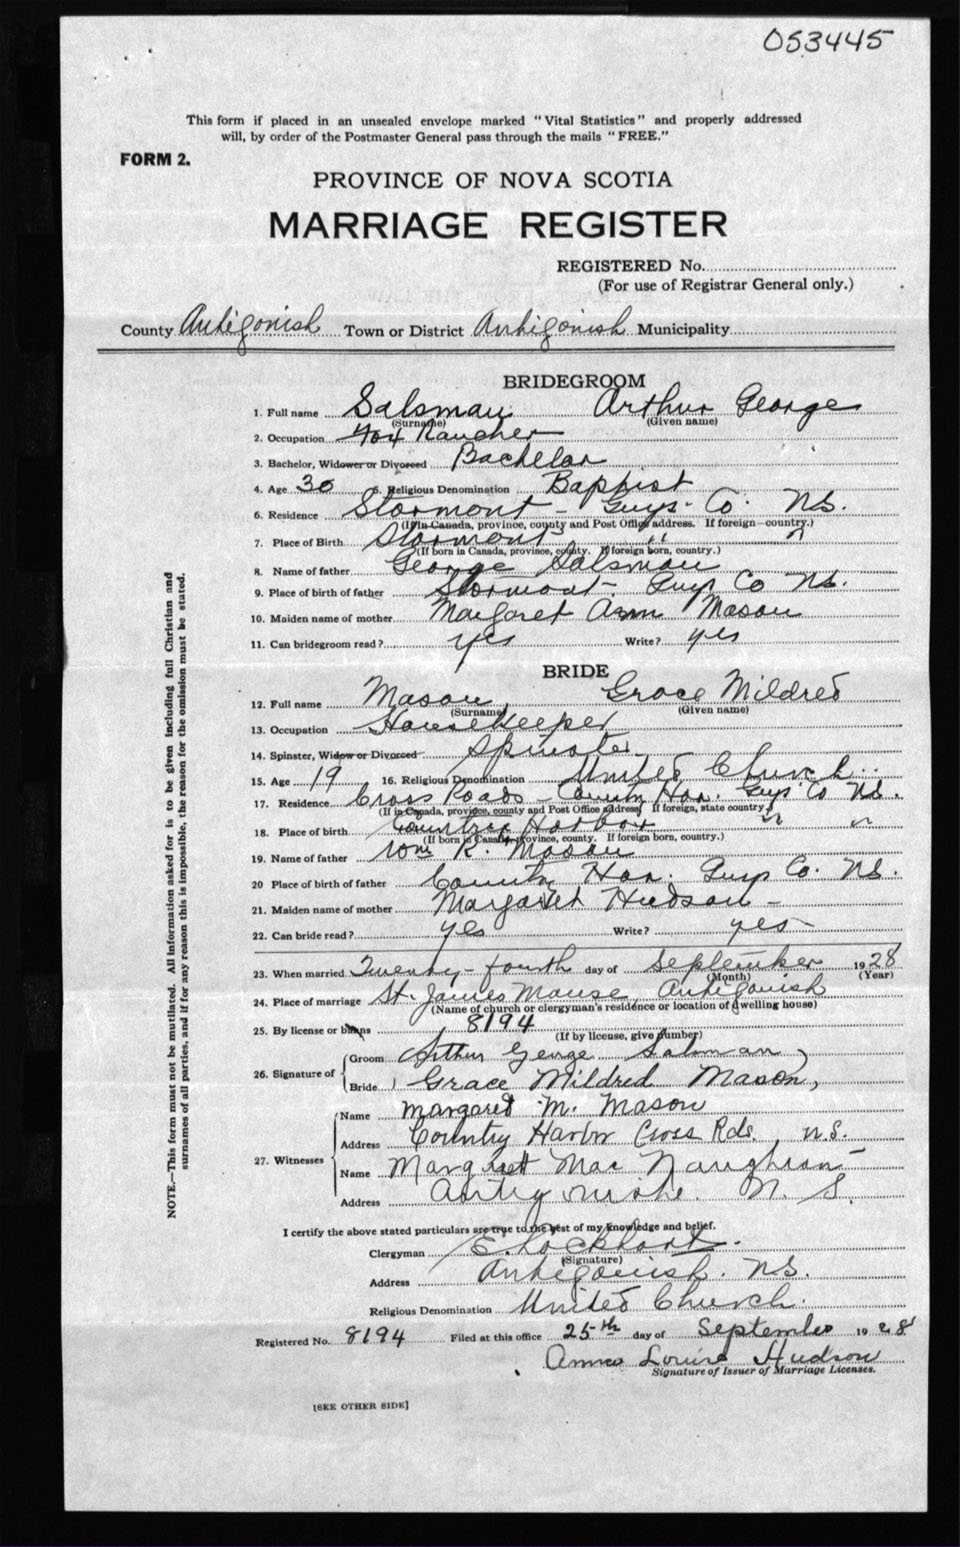 053445
This form if placed in an unsealed envelope marked "Vital Statistics" and properly addressed
will, by order of the Postmaster General pass through the mails "FREE."
FORM 2.
PROVINCE OF NOVA SCOTIA
MARRIAGE REGISTER
REGISTERED No.
(For use of Registrar General only.)
County Antigonish Town or District Antigonish Municipality
BRIDEGROOM
1. Full name Salsman Arthur George
(Surname) (Given name)
2. Occupation Fox Rancher
3. Bachelor, Widower or Divorced Bachelor
4. Age 30 5. Religious Denomination Baptist
6. Residence Stormont - Guys. Co. NS.
(If in Canada, province, county and Post Office address. If foreign country.)
7. Place of Birth Stormont " "
(If born in Canada, province, county. If foreign born, country.)
8. Name of father George Salsman
9. Place of birth of father Stormont - Guys Co NS.
10. Maiden name of mother Margaret Ann Mason
11. Can bridegroom read? yes Write? yes
BRIDE
12. Full name Mason Grace Mildred
(Surname) (Given name)
13. Occupation Housekeeper
14. Spinster, Widow or Divorced Spinster
15. Age 19 16. Religious Denomination United Church
17. Residence Cross Roads Country Har. Guys Co NS.
(If in Canada, province, county and Post Office address. If foreign, state country.)
18. Place of birth Country Harbor " "
(If born in Canada, province, county. If foreign born, country.)
19. Name of father Wm R. Mason
20 Place of birth of father Country Har. Guys Co. NS.
21. Maiden name of mother Margaret Hudson -
22. Can bride read? yes Write? yes
23. When married Twenty-fourth day of September 1928
(Month) (Year)
24. Place of marriage St. James Manse Antigonish
(Name of church or clergyman's residence or location of dwelling house)
25. By license or banns 8194
(If by license, give number)
26. Signature of Groom Arthur George Salsman
Bride Grace Mildred Mason
27. Witnesses
Name Margaret M. Mason
Address Country Harbor Cross Rds, N.S.
Name Margaret Mac Naughton
Address Antigonishe. N. S.
I certify the above stated particulars are true to the best of my knowledge and belief.
Clergyman E. Lockhart.
(Signature)
Address Antigonish. NS.
Religious Denomination United Church.
Registered No. 8194 Filed at this office 25th day of September 1928
Louise Hudson
Signature of Issuer of Marriage Licenses.
[SEE OTHER SIDE]
NOTE.—This form must not be mutilated. All information asked for is to be given including full Christian and
surnames of all parties, and if for any reason this is impossible, the reason for the omission must be stated.